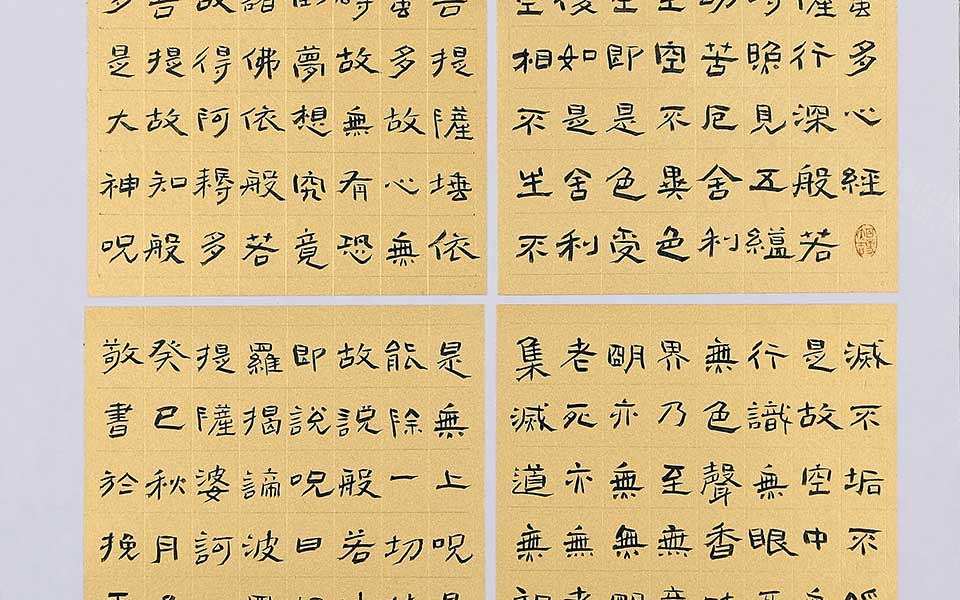 蜜多心經
薩行深般若
時照見五蘊
切苦厄舍利
空空不異色
空即是色受
復如是舍利
空相不生不
滅不垢不
是故空中
行識無眼
無色聲香
界乃至無
明亦無無
老死亦無
集滅道無
菩提薩埵依
蜜多故心無
故無有恐
倒夢想究竟
諸佛依般若
故得阿耨多
菩提故知般
多是大神呪
是無上呪
能除一切
故說般若
即說呪曰
羅揭諦波
提薩婆訶
癸巳秋月
敬書於挽